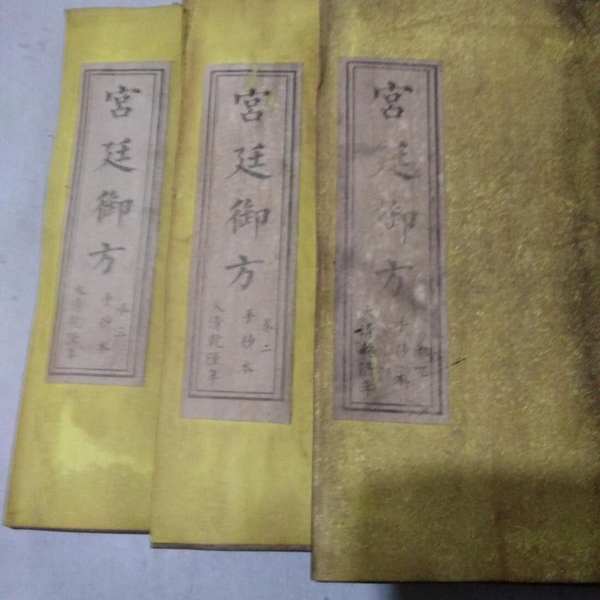 宮廷御方
手抄本
大清乾隆年
宮廷御方
卷二
手抄本
大清乾隆年
宮廷御方
手抄本
大清乾隆年